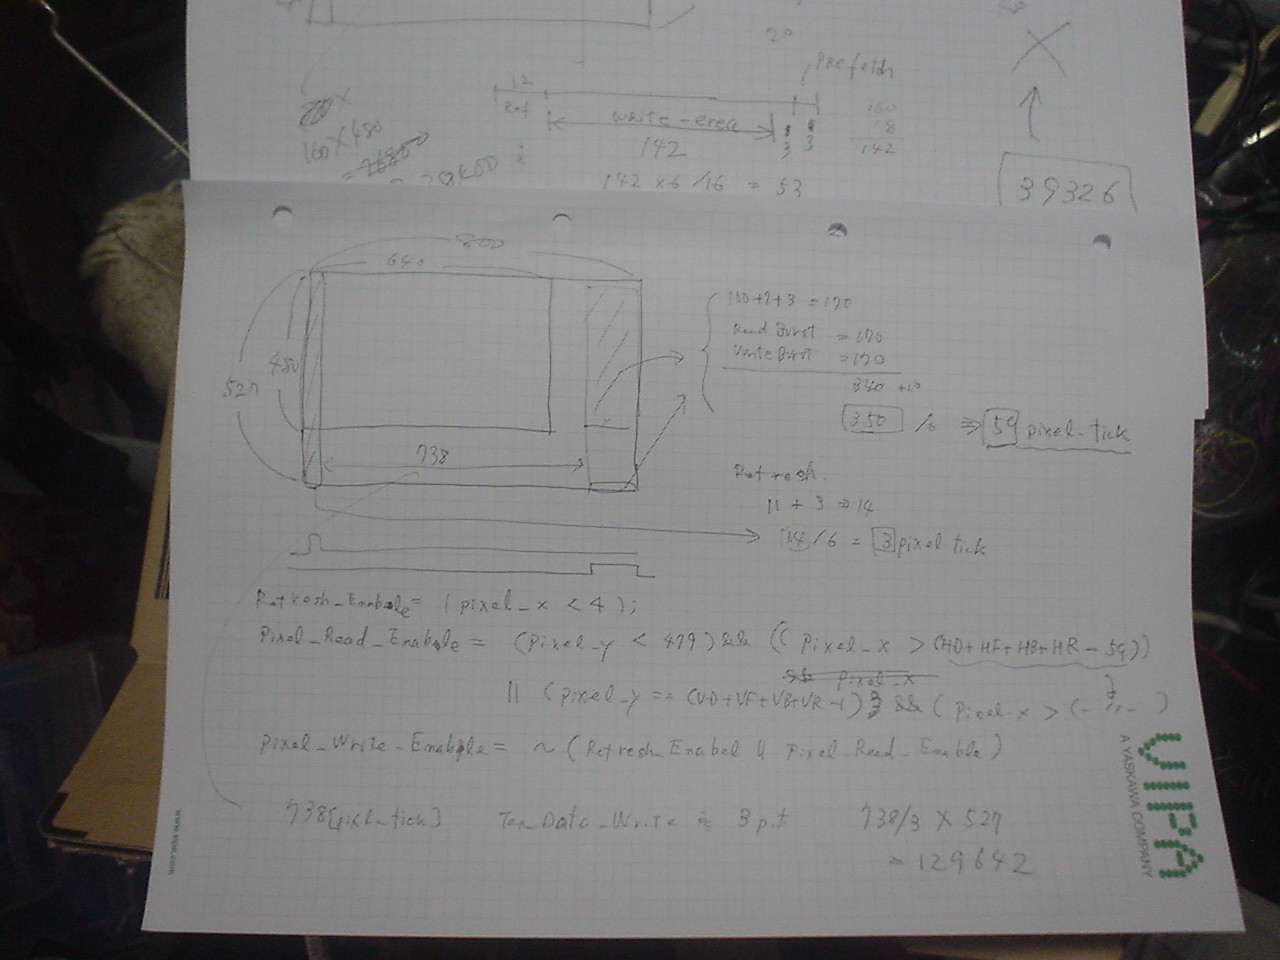 20
Prefetch
12
Ref
write-area
3 3
160
18
142
142
160 x 480
142 x 6 /16 = 53
39326
800
640
160+7+3 = 170
Read Burst = 170
Write Burst = 170
340 +10
480
527
350 /6 ⇒ 59 pixel-tick
738
Refresh.
11 + 3 ⇒ 14
14/6 = 3 pixel tick
Refresh_Enable = (pixel_x < 4);
Pixel_Read_Enable = (Pixel_y < 479) && ((Pixel_x > (HD+HF+HB+HR-59))
&& pixel_x
|| (pixel_y == (VD+VF+VB+VR-1) && (pixel_x > (- 〃 - )
pixel_Write_Enable = ~(Refresh_Enabel || Pixel_Read_Enable)
738[pixl_tick] Data_Write 3 p.t 738/3 X 527
= 129642
VIPA
A YASKAWA COMPANY